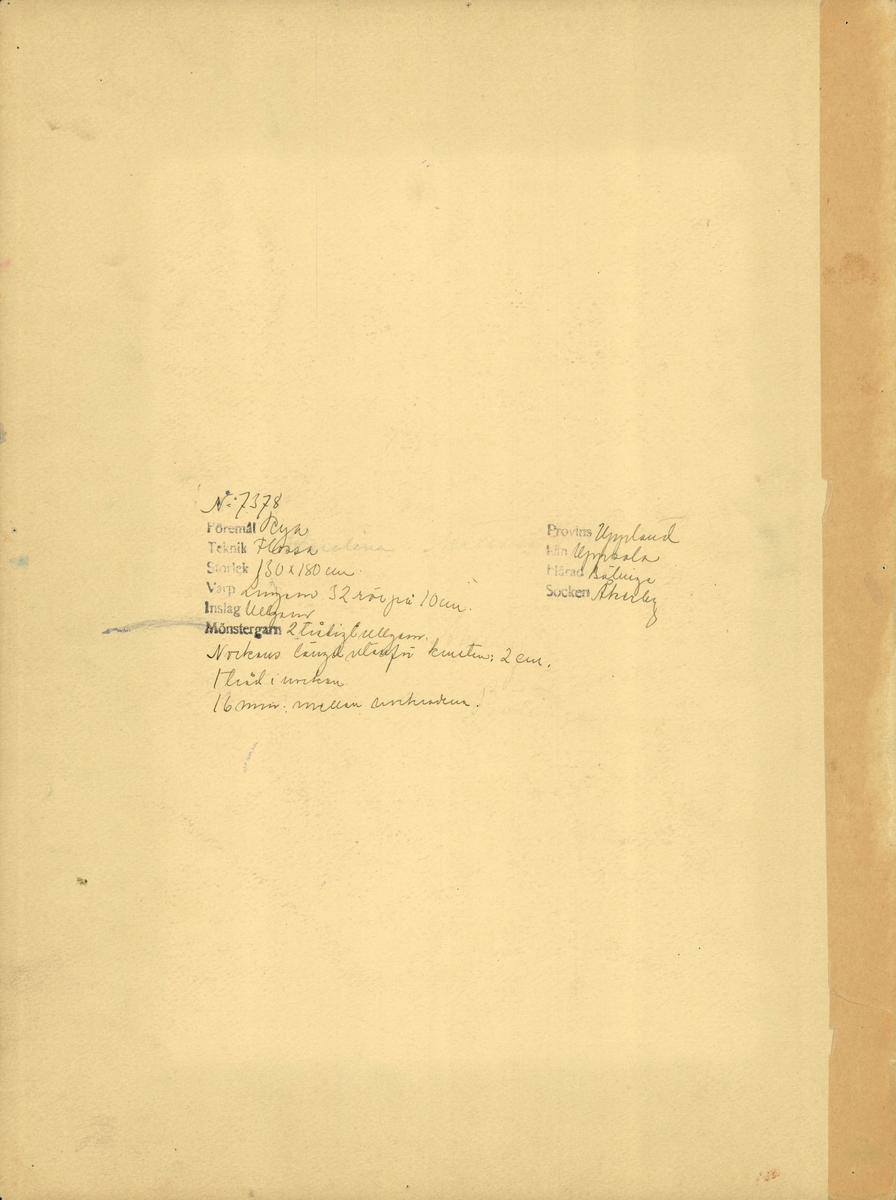 N:o 7378
Föremål Rya
Teknik Flossa
Storlek 130 x 180 cm.
Varp Lingarn 32 rör på 10 cm.
Inslag Ullgarn
Mönstergarn 2 trådigt ullgarn.
Nockans längd utanför knuten: 2 cm.
1 tråd i nockan
16 mm. mellan nockraderna.
Provins Uppland
Län Uppsala
Härad Bälinge
Socken Åkerby